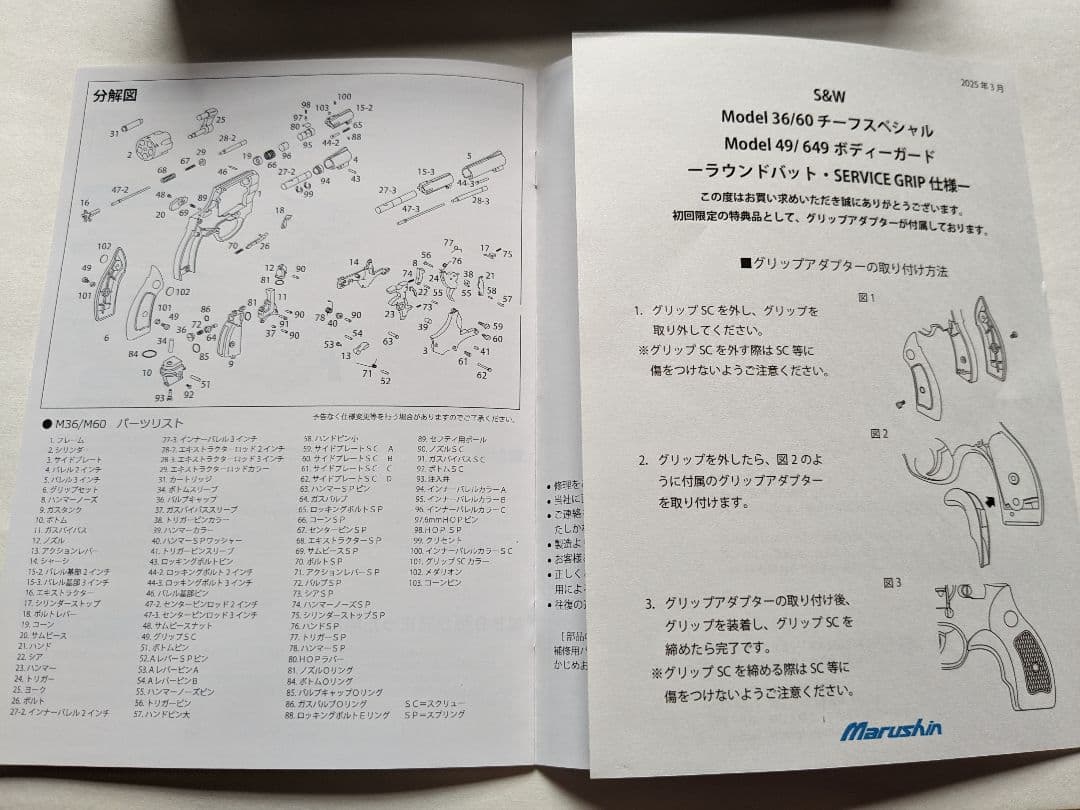 分解図
● M36/M60 パーツリスト
予告なく仕様変更等を行う場合がありますのでご了承ください。
1. フレーム
2. シリンダ
3. サイドプレート
4. バレル2インチ
5. バレル3インチ
6. グリップセット
8. ハンマーノーズ
9. ガスタンク
10. ボトム
11. ガスバイパス
12. ノズル
13. アクションレバー
14. シャーシ
15-2. バレル基部2インチ
15-3. バレル基部3インチ
16. エキストラクター
17. シリンダーストップ
18. ボルトレバー
19. コーン
20. サムピース
21. ハンド
22. シア
23. ハンマー
24. トリガー
25. ヨーク
26. ボルト
27-2. インナーバレル2インチ
27-3. インナーバレル3インチ
28-2. エキストラクターロッド2インチ
28-3. エキストラクターロッド3インチ
29. エキストラクターロッドカラー
31. カートリッジ
34. ボトムスリーブ
36. バルブキャップ
37. ガスバイパススリーブ
38. トリガーピンカラー
39. ハンマーカラー
40. ハンマーSPワッシャー
41. トリガーピンスリーブ
43. ロッキングボルトピン
44-2. ロッキングボルト2インチ
44-3. ロッキングボルト3インチ
46. バレル基部ピン
47-2. センターピンロッド2インチ
47-3. センターピンロッド3インチ
48. サムピースナット
49. グリップSC
51. ボトムピン
52. AレバーSPピン
53. AレバーピンA
54. AレバーピンB
55. ハンマーノーズピン
56. トリガーピン
57. ハンドピン大
58. ハンドピン小
59. サイドプレートSC A
60. サイドプレートSC B
61. サイドプレートSC C
62. サイドプレートSC D
63. ハンマーSPピン
64. ガスバルブ
65. ロッキングボルトSP
66. コーンSP
67. センターピンSP
68. エキストラクターSP
69. サムピースSP
70. ボルトSP
71. アクションレバーSP
72. バルブSP
73. シアSP
74. ハンマーノーズSP
75. シリンダーストップSP
76. ハンドSP
77. トリガーSP
78. ハンマーSP
80. HOPラバー
81. ノズルOリング
84. ボトムOリング
85. バルブキャップOリング
86. ガスバルブOリング
88. ロッキングボルトEリング
89. セフティ用ボール
90. ノズルSC
91. ガスバイパスSC
92. ボトムSC
93. 注入弁
94. インナーバレルカラーA
95. インナーバレルカラーB
96. インナーバレルカラーC
97. 6mmHOPピン
98. HOP SP
99. クリセント
100. インナーバレルカラーSC
101. グリップSCカラー
102. メダリオン
103. コーンピン
SC=スクリュー
SP=スプリング
● 修理を
● 当社に
● ご連絡
たしか
● 製造よ
● お客様
● 正しく
用によ
● 往復の
[部品の
補修用パ
かじめお
2025年3月
S&W
Model 36/60 チーフスペシャル
Model 49/ 649 ボディーガード
ーラウンドバット・SERVICE GRIP 仕様ー
この度はお買い求めいただき誠にありがとうございます。
初回限定の特典品として、グリップアダプターが付属しております。
■グリップアダプターの取り付け方法
図1
1. グリップSCを外し、グリップを
取り外してください。
※グリップSCを外す際はSC等に
傷をつけないようご注意ください。
図2
2. グリップを外したら、図2のよ
うに付属のグリップアダプター
を取り付けます。
図3
3. グリップアダプターの取り付け後、
グリップを装着し、グリップSCを
締めたら完了です。
※グリップSCを締める際はSC等に
傷をつけないようご注意ください。
Marushin